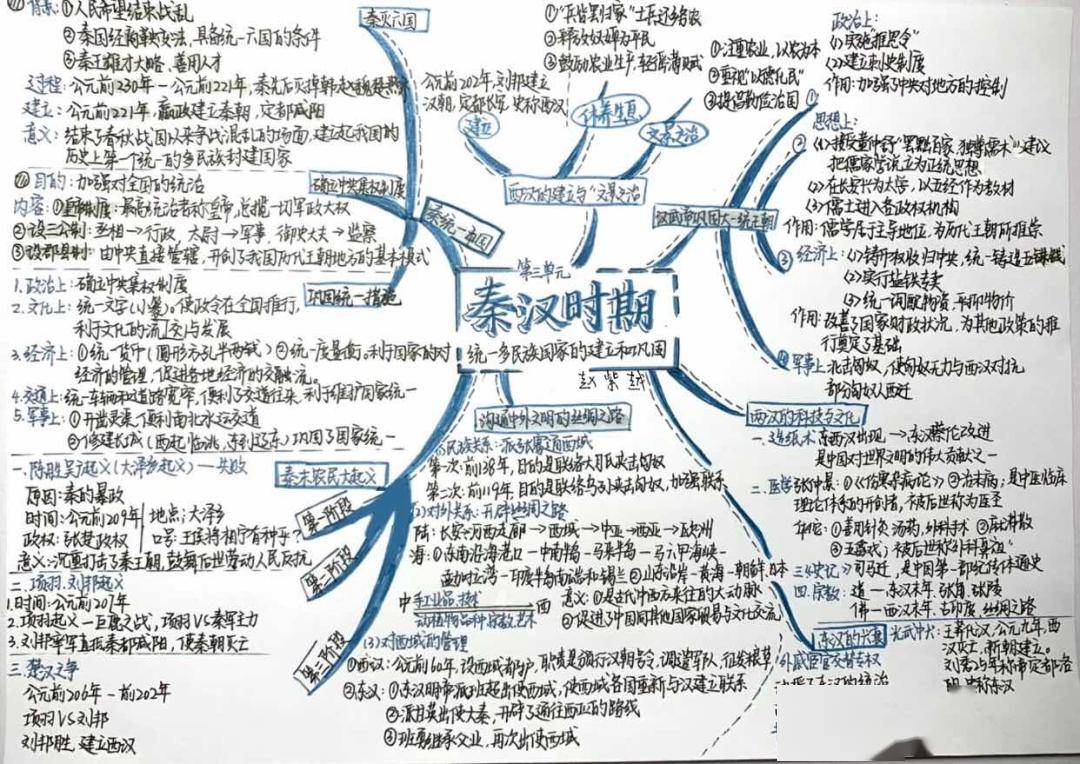 背景：①人民希望结束战乱
②秦国经商鞅变法，具备统一六国的条件
③秦王雄才大略、善用人才
过程：公元前230年－公元前221年，秦先后灭掉韩赵魏楚燕
建立：公元前221年，嬴政建立秦朝，定都咸阳
意义：结束了春秋战国以来争战混乱的场面，建立起我国的
历史上第一个统一的多民族封建国家
秦灭六国
目的：加强对全国的统治
内容：①皇帝制度：最高统治者称皇帝，总揽一切军政大权
②设三公制：丞相→行政，太尉→军事，御史大夫→监察
③设郡县制：由中央直接管辖，开创了我国历代王朝地方的基本模式
确立中央集权制度
秦统一中国
1.政治上：确立中央集权制度
2.文化上：统一文字(小篆)。使政令在全国推行，
利于文化的流交与发展
3.经济上：①统一货币(圆形方孔半两钱)②统一度量衡。利于国家的对
经济的管理，促进各地经济的交融流。
4.交通上：统一车辆和道路宽窄，便利了交通往来，利于维护国家统一
5.军事上：①开凿灵渠，便利南北水运交通
②修建长城(西起临洮，东到辽东)巩固了国家统一
巩固统一措施
一.陈胜吴广起义(大泽乡起义)—失败
原因：秦的暴政
时间：公元前209年 地点：大泽乡
政权：张楚政权 口号：王侯将相宁有种乎？
意义：沉重打击了秦王朝，鼓舞后世劳动人民反抗
二.项羽、刘邦起义
1.时间：公元前207年
2.项羽起义－巨鹿之战，项羽VS秦军主力
3.刘邦率军直抵秦都咸阳，使秦朝灭亡
三.楚汉之争
公元前206年－前202年
项羽VS刘邦
刘邦胜，建立西汉
秦末农民大起义
第一阶段
第二阶段
第三阶段
第三单元
秦汉时期
统一多民族国家的建立和巩固
赵紫越
公元前202年，刘邦建立
汉朝，定都长安，史称西汉
建立
①"兵皆罢归家"士兵还乡务农
②释放奴婢为平民
③鼓励农业生产，轻徭薄赋
休养生息
①注重农业，以农为本
②重视"以德化民"
③提倡勤俭治国
文景之治
西汉的建立与"文景之治"
汉武帝巩固大一统王朝
①
政治上：
(1)实施"推恩令"
(2)建立刺史制度
作用：加强了中央对地方的控制
②
思想上：
(1)接受董仲舒"罢黜百家，独尊儒术"建议
把儒家学说立为正统思想
(2)在长安兴办太学，以五经作为教材
(3)儒士进入各政权机构
作用：儒学居于主导地位，为历代王朝所推崇
③经济上：(1)铸币权收归中央，统一铸造五铢钱
(2)实行盐铁专卖
(3)统一调配物资，平抑物价
作用：改善了国家财政状况，为其他政策的推
行奠定了基础
④军事上：北击匈奴，使匈奴无力与西汉对抗
部分匈奴人西迁
西汉的科技与文化
一.造纸术：东西汉出现→东汉蔡伦改进
是中国对世界文明的伟大贡献之一
二.医学：张仲景：①《伤寒杂病论》②治未病；是中医临床
理论体系的开创者，被后世称为医圣
华佗：①善用针灸、汤药，外科手术②麻沸散
③五禽戏；被后世称"外科鼻祖"
三.《史记》：司马迁，是中国第一部纪传体通史
四.宗教：道－东汉末年，张角、张陵
佛－西汉末年，古印度，丝绸之路
东汉的兴衰
光武中兴：王莽代汉，公元九年，西
汉灭亡，新朝建立。
刘秀25年称帝定都洛
阳，史称东汉
外戚宦官交替专权
沟通中外文明的丝绸之路
(1)民族关系：派张骞通西域
第一次：前138年，目的是联络大月氏夹击匈奴
第二次：前119年，目的是联络乌孙夹击匈奴，加强联系
(2)对外关系：开辟丝绸之路
陆：长安→河西走廊→西域→中亚→西亚→欧洲
海：①东南沿海港口－中南半岛－马来半岛－马六甲海峡－
孟加拉湾－印度半岛南端和锡兰②山东沿岸－黄海－朝鲜、日本
中 手工业品、技术 西
动植物品种、宗教、艺术
意义：①是古代中西方来往的大动脉
②促进了中国同其他国家贸易与文化交流
(3)对西域的管理
①西汉：公元前60年，设西域都护，职责是颁行汉朝号令，调遣军队，征发粮草
②东汉：①东汉明帝派班超出使西域，使西域各国重新与汉建立联系
②派甘英出使大秦，开辟了通往西亚的路线
③班勇继承父业，再次出使西域